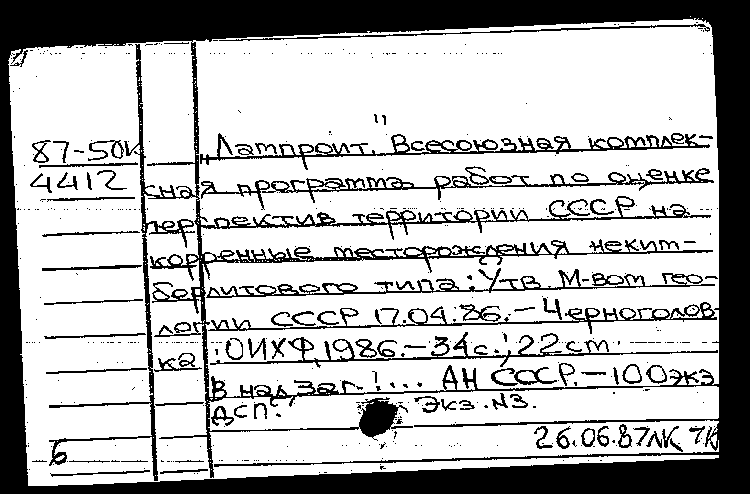 87-50к „Лампроит". Всесоюзная комплек-
4412 сная программа работ по оценке
перспектив территории СССР на
коренные месторождения неким-
берлитового типа: Утв. М-вом гео-
логии СССР 17.04.86. – Черноголов
ка :ОИХФ, 1986. – 34с.; 22 см.
В надзаг.: ... АН СССР. – 100экз
ДСП. Экз. №3.
26.06.87 ЛК
6